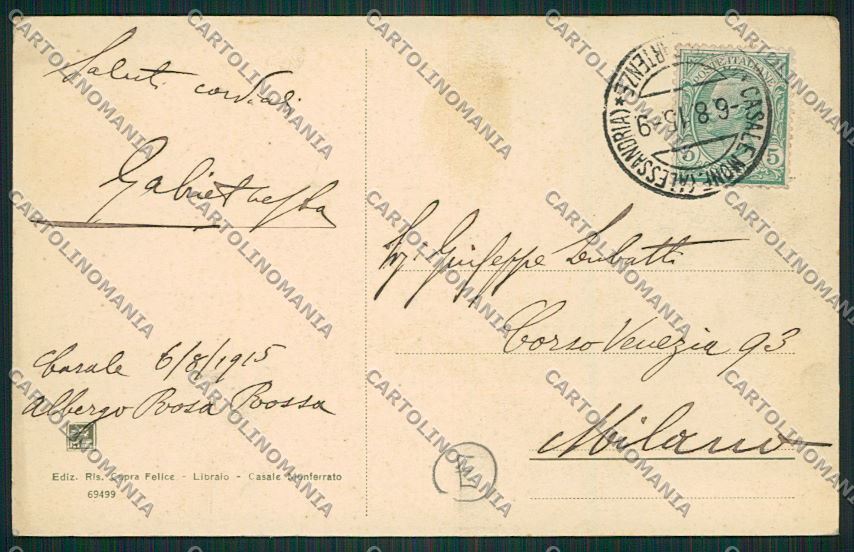 Saluti cordiali
Casale 6/8/1915
Albergo Rosa Rossa
Ediz. Ris. Copra Felice - Libraio - Casale Monferrato
69499
POSTE ITALIANE
5 5
CASALE MONF. (ALESSANDRIA) ★
-6 8 15-9
Sig. Giuseppe
Corso Venezia 93
Milano
L
CARTOLINOMANIA